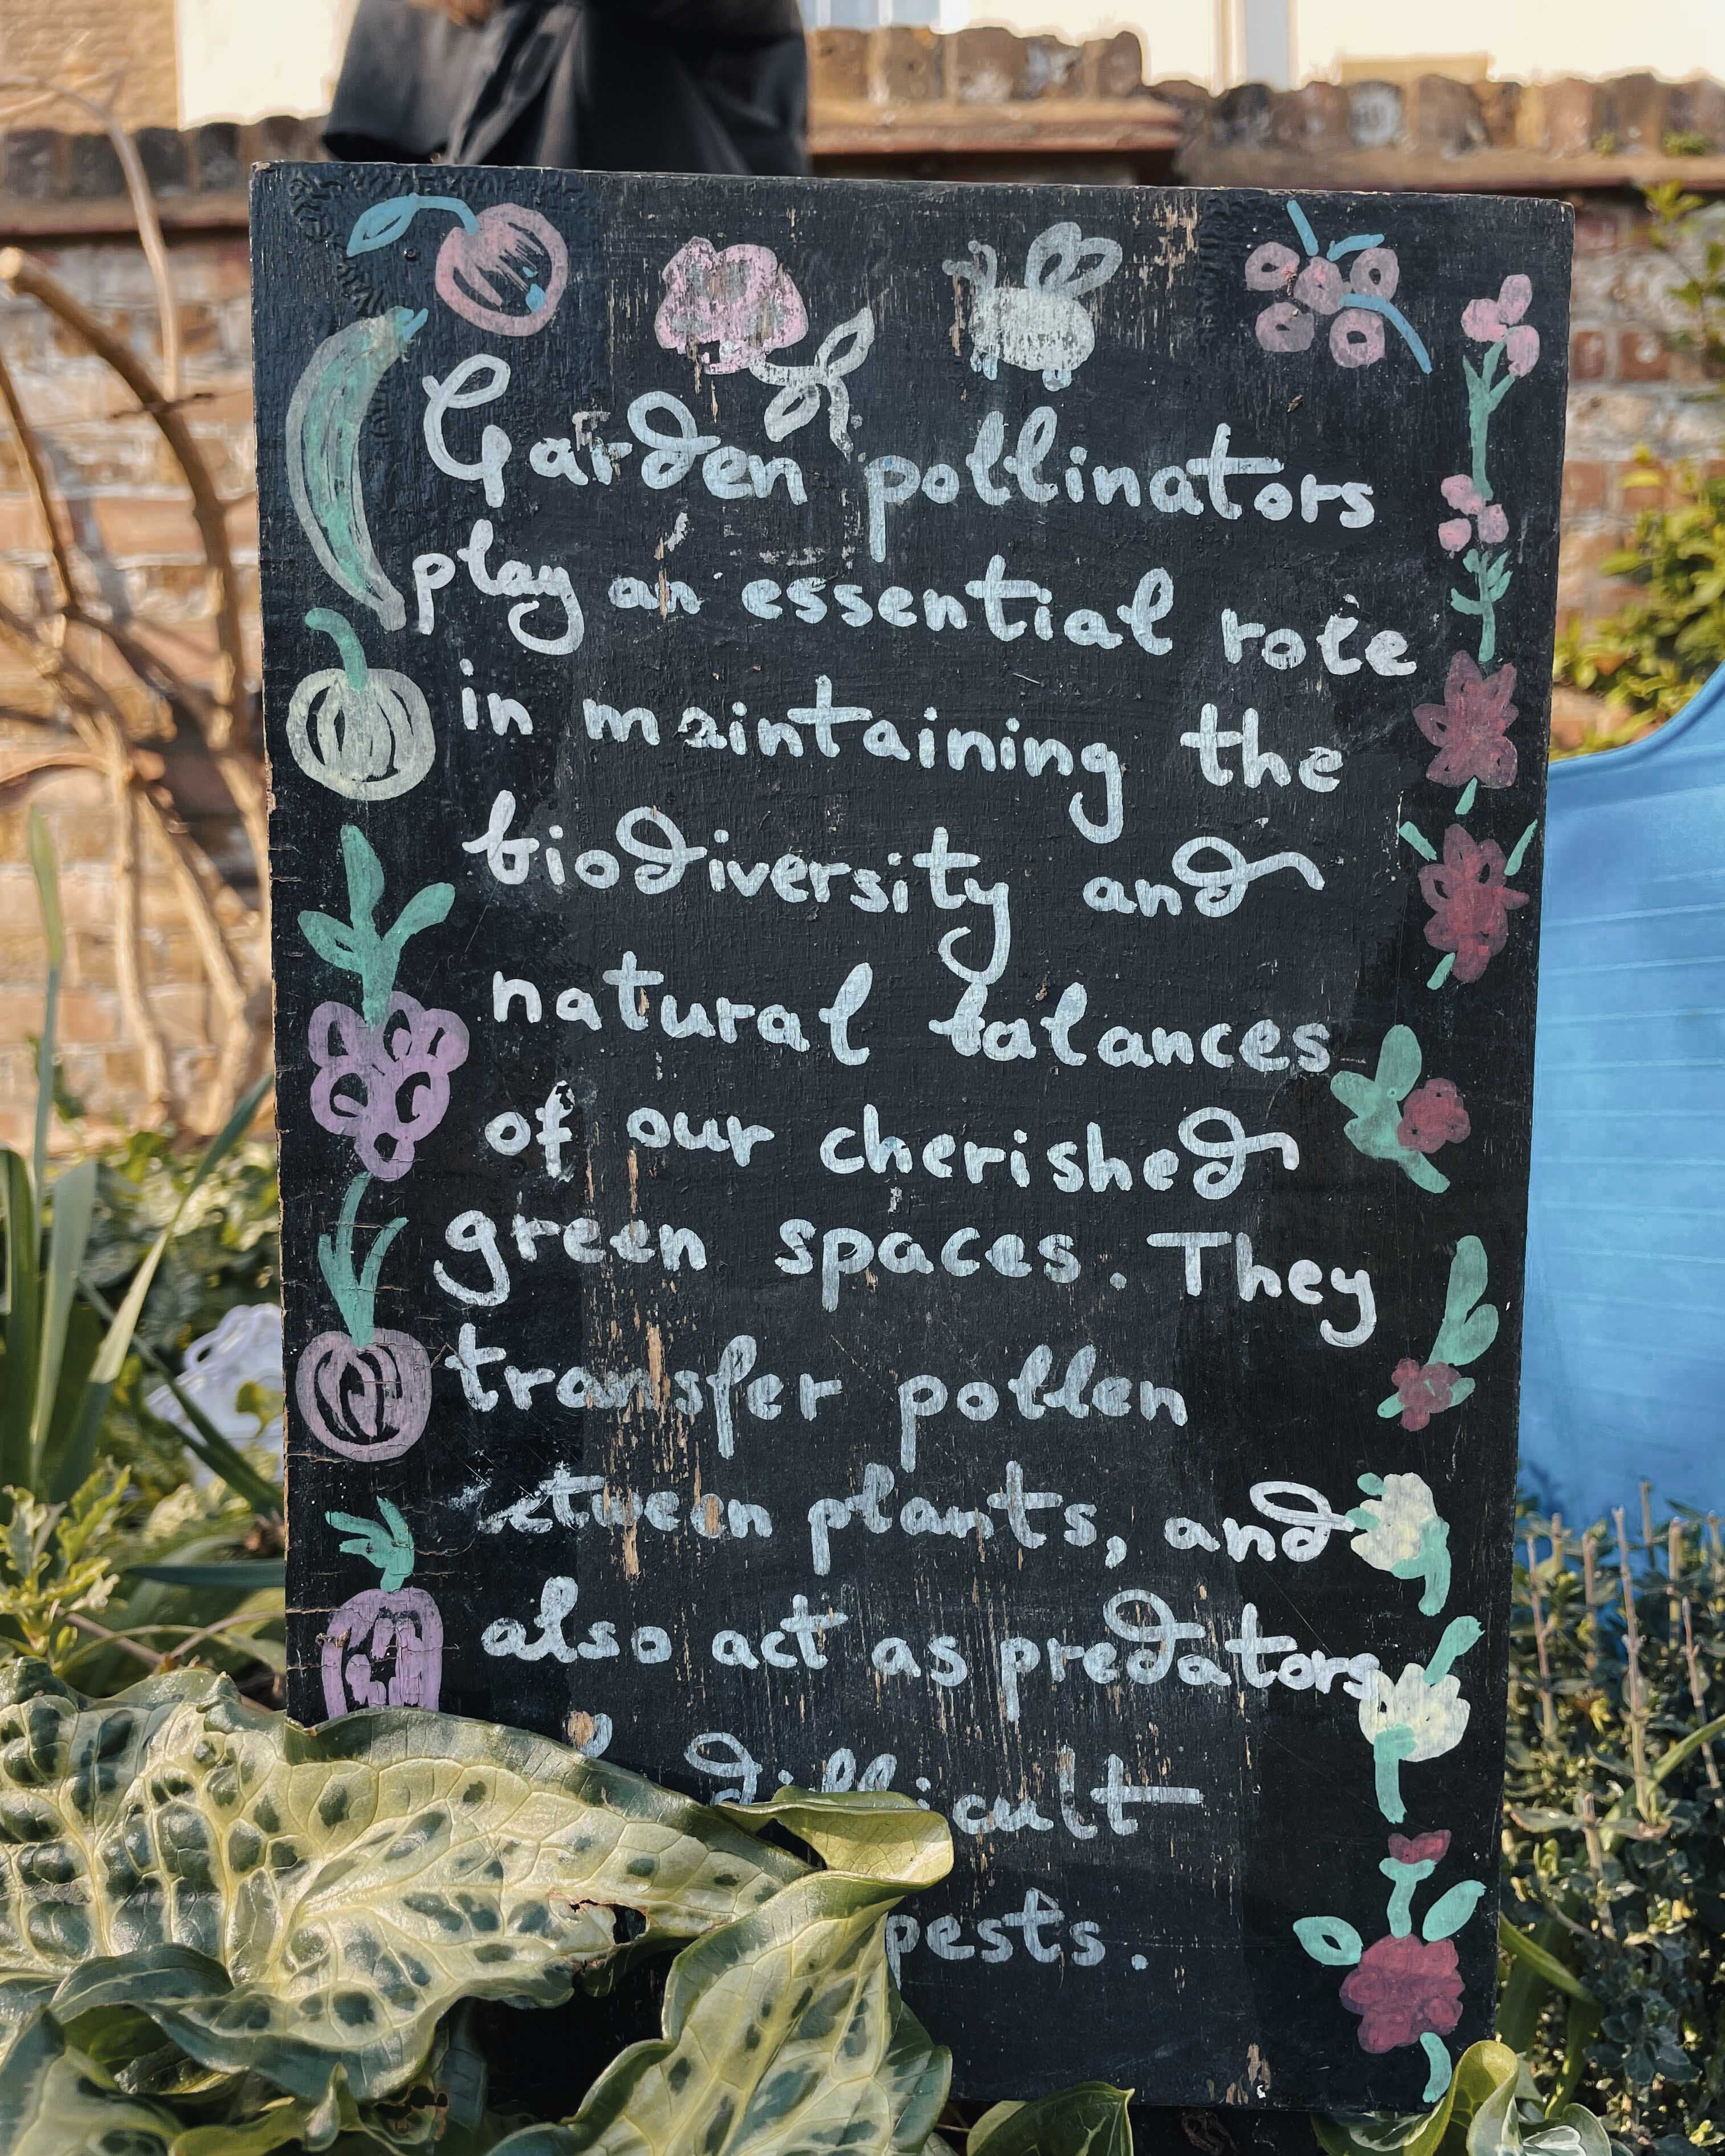 Garden pollinators
play an essential role
in maintaining the
biodiversity and
natural balances
of our cherished
green spaces. They
transfer pollen
between plants, and
also act as predators
difficult
pests.